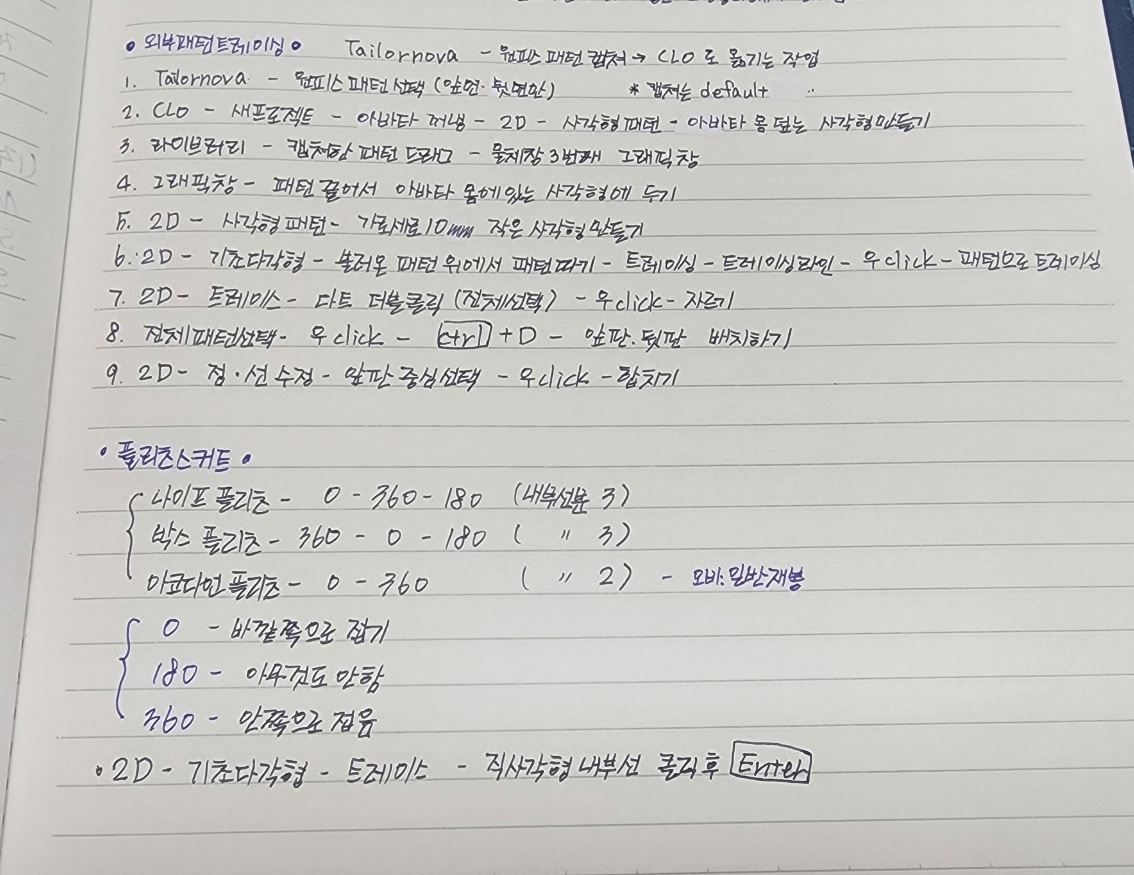 • 외부패턴트레이싱 • Tailornova - 원피스 패턴 캡처 → CLO로 옮기는 작업
1. Tailornova - 원피스 패턴 선택 (앞면·뒷면만) * 캡처는 default
2. CLO - 새프로젝트 - 아바타 꺼냄 - 2D - 사각형패턴 - 아바타 몸 덮는 사각형만들기
3. 라이브러리 - 캡처한 패턴 드래그 - 물체창 3번째 그래픽창
4. 그래픽창 - 패턴 끌어서 아바타 몸에있는 사각형에 두기
5. 2D - 사각형패턴 - 가로세로 10mm 작은 사각형만들기
6. 2D - 기초다각형 - 불러온 패턴 위에서 패턴따기 - 트레이싱 - 트레이싱라인 - 우click - 패턴으로 트레이싱
7. 2D - 트레이스 - 다트 더블클릭 (전체선택) - 우click - 자르기
8. 전체패턴선택 - 우click - ctrl + D - 앞판.뒷판 배치하기
9. 2D - 점·선수정 - 앞판중심선택 - 우click - 합치기
• 플리츠스커트 •
나이프 플리츠 - 0 - 360 - 180 (내부선분 3)
박스 플리츠 - 360 - 0 - 180 ( 〃 3)
아코디언 플리츠 - 0 - 360 ( 〃 2) - 오바: 일반재봉
0 - 바깥쪽으로 접기
180 - 아무것도 안함
360 - 안쪽으로 접음
• 2D - 기초다각형 - 트레이스 - 직사각형 내부선 클릭 후 Enter